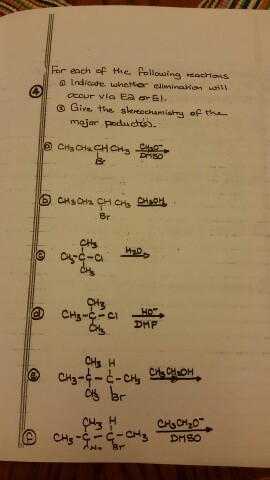 For each of the following reactions
④ ① Indicate whether elimination will
occur via E2 or E1.
② Give the stereochemistry of the
major poduct(s).
ⓐ CH₃CH₂CHCH₃ CH₃O⁻
Br DMSO
ⓑ CH₃CH₂CHCH₃ CH₃OH
Br
ⓒ CH₃
CH₃-C-Cl H₂O
CH₃
ⓓ CH₃
CH₃-C-Cl HO⁻
CH₃ DMF
ⓔ CH₃ H
CH₃-C-C-CH₃ CH₃CH₂OH
CH₃ Br
ⓕ CH₃ H
CH₃-C-C-CH₃ CH₃CH₂O⁻
Br DMSO